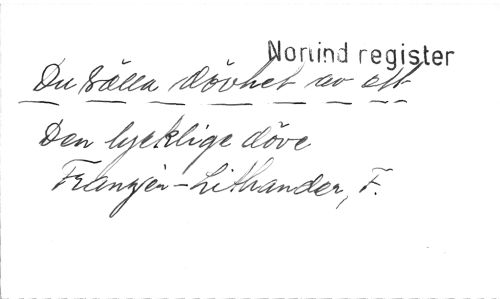 Norlind register
Du sälla dövhet av ett
Den lycklige döve
Franzén-Lithander, F.